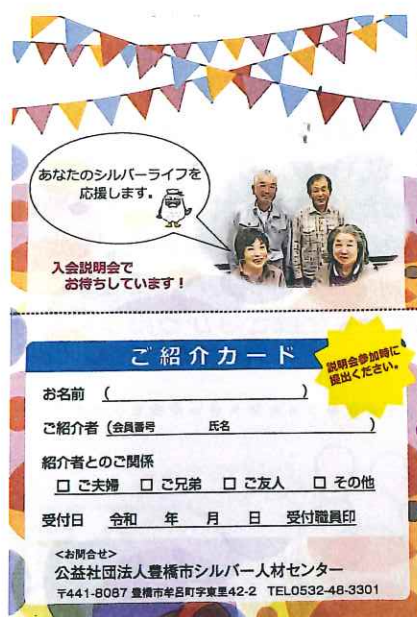 あなたのシルバーライフを
応援します。
入会説明会で
お待ちしています！
ご紹介カード
説明会参加時に
提出ください。
お名前 (　　　　　　　　　　)
ご紹介者 (会員番号　　　　氏名　　　　　　　　)
紹介者とのご関係
□ ご夫婦 □ ご兄弟 □ ご友人 □ その他
受付日 令和 年 月 日 受付職員印
<お問合せ>
公益社団法人豊橋市シルバー人材センター
〒441-8087 豊橋市牟呂町字東里42-2 TEL0532-48-3301